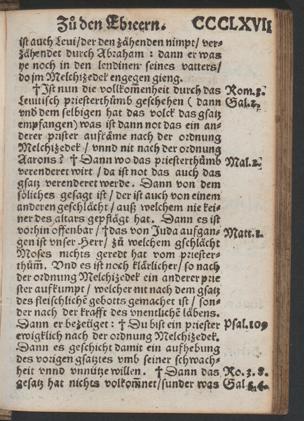 Zů den Ebreern. CCCLXVII
ist auch Leui/ der den zähenden nimpt/ ver-
zähendet durch Abraham : dann er was
ye noch in den lendinen seines vatters/
do jm Melchizedek engegen gieng.
† Ist nun die vollkomenheit durch das Rom.3.
Leuitisch priesterthůmb geschehen ( dann Gal.2.
vnd dem selbigen hat das volck das gsatz
empfangen) was ist dann not das ein an-
derer priester aufkäme nach der ordnung
Melchizedek / vnnd nit nach der ordnung
Aarons? † Dann wo das priesterthůmb Mal.2.
verenderet wirt / da ist not das auch das
gsatz verenderet werde. Dann von dem
söliches gesagt ist / der ist auch von einem
anderen geschlächt/ auß welchem nie kei-
ner des altars gepflägt hat. Dann es ist
vorhin offenbar / † das von Juda aufgan- Matt.1.
gen ist vnser Herr/ zů welchem gschlächt
Moses nichts geredt hat vom priester-
thům. Vnd es ist noch klärlicher/ so nach
der ordnung Melchizedek ein anderer prie
ster aufkumpt / welcher nit nach dem gsatz
des fleischlichē gebotts gemachet ist / son-
der nach der krafft des vnentlichē läbens.
Dann er bezeüget : † Du bist ein priester Psal.109
ewigklich nach der ordnung Melchizedek.
Dann es geschicht damit ein aufhebung
des vorigen gsatztes vmb seiner schwach-
heit vnnd vnnütze willen. † Dann das Ro.3.8.
gesatz hat nichts volkom̃net/ sunder was Gal.